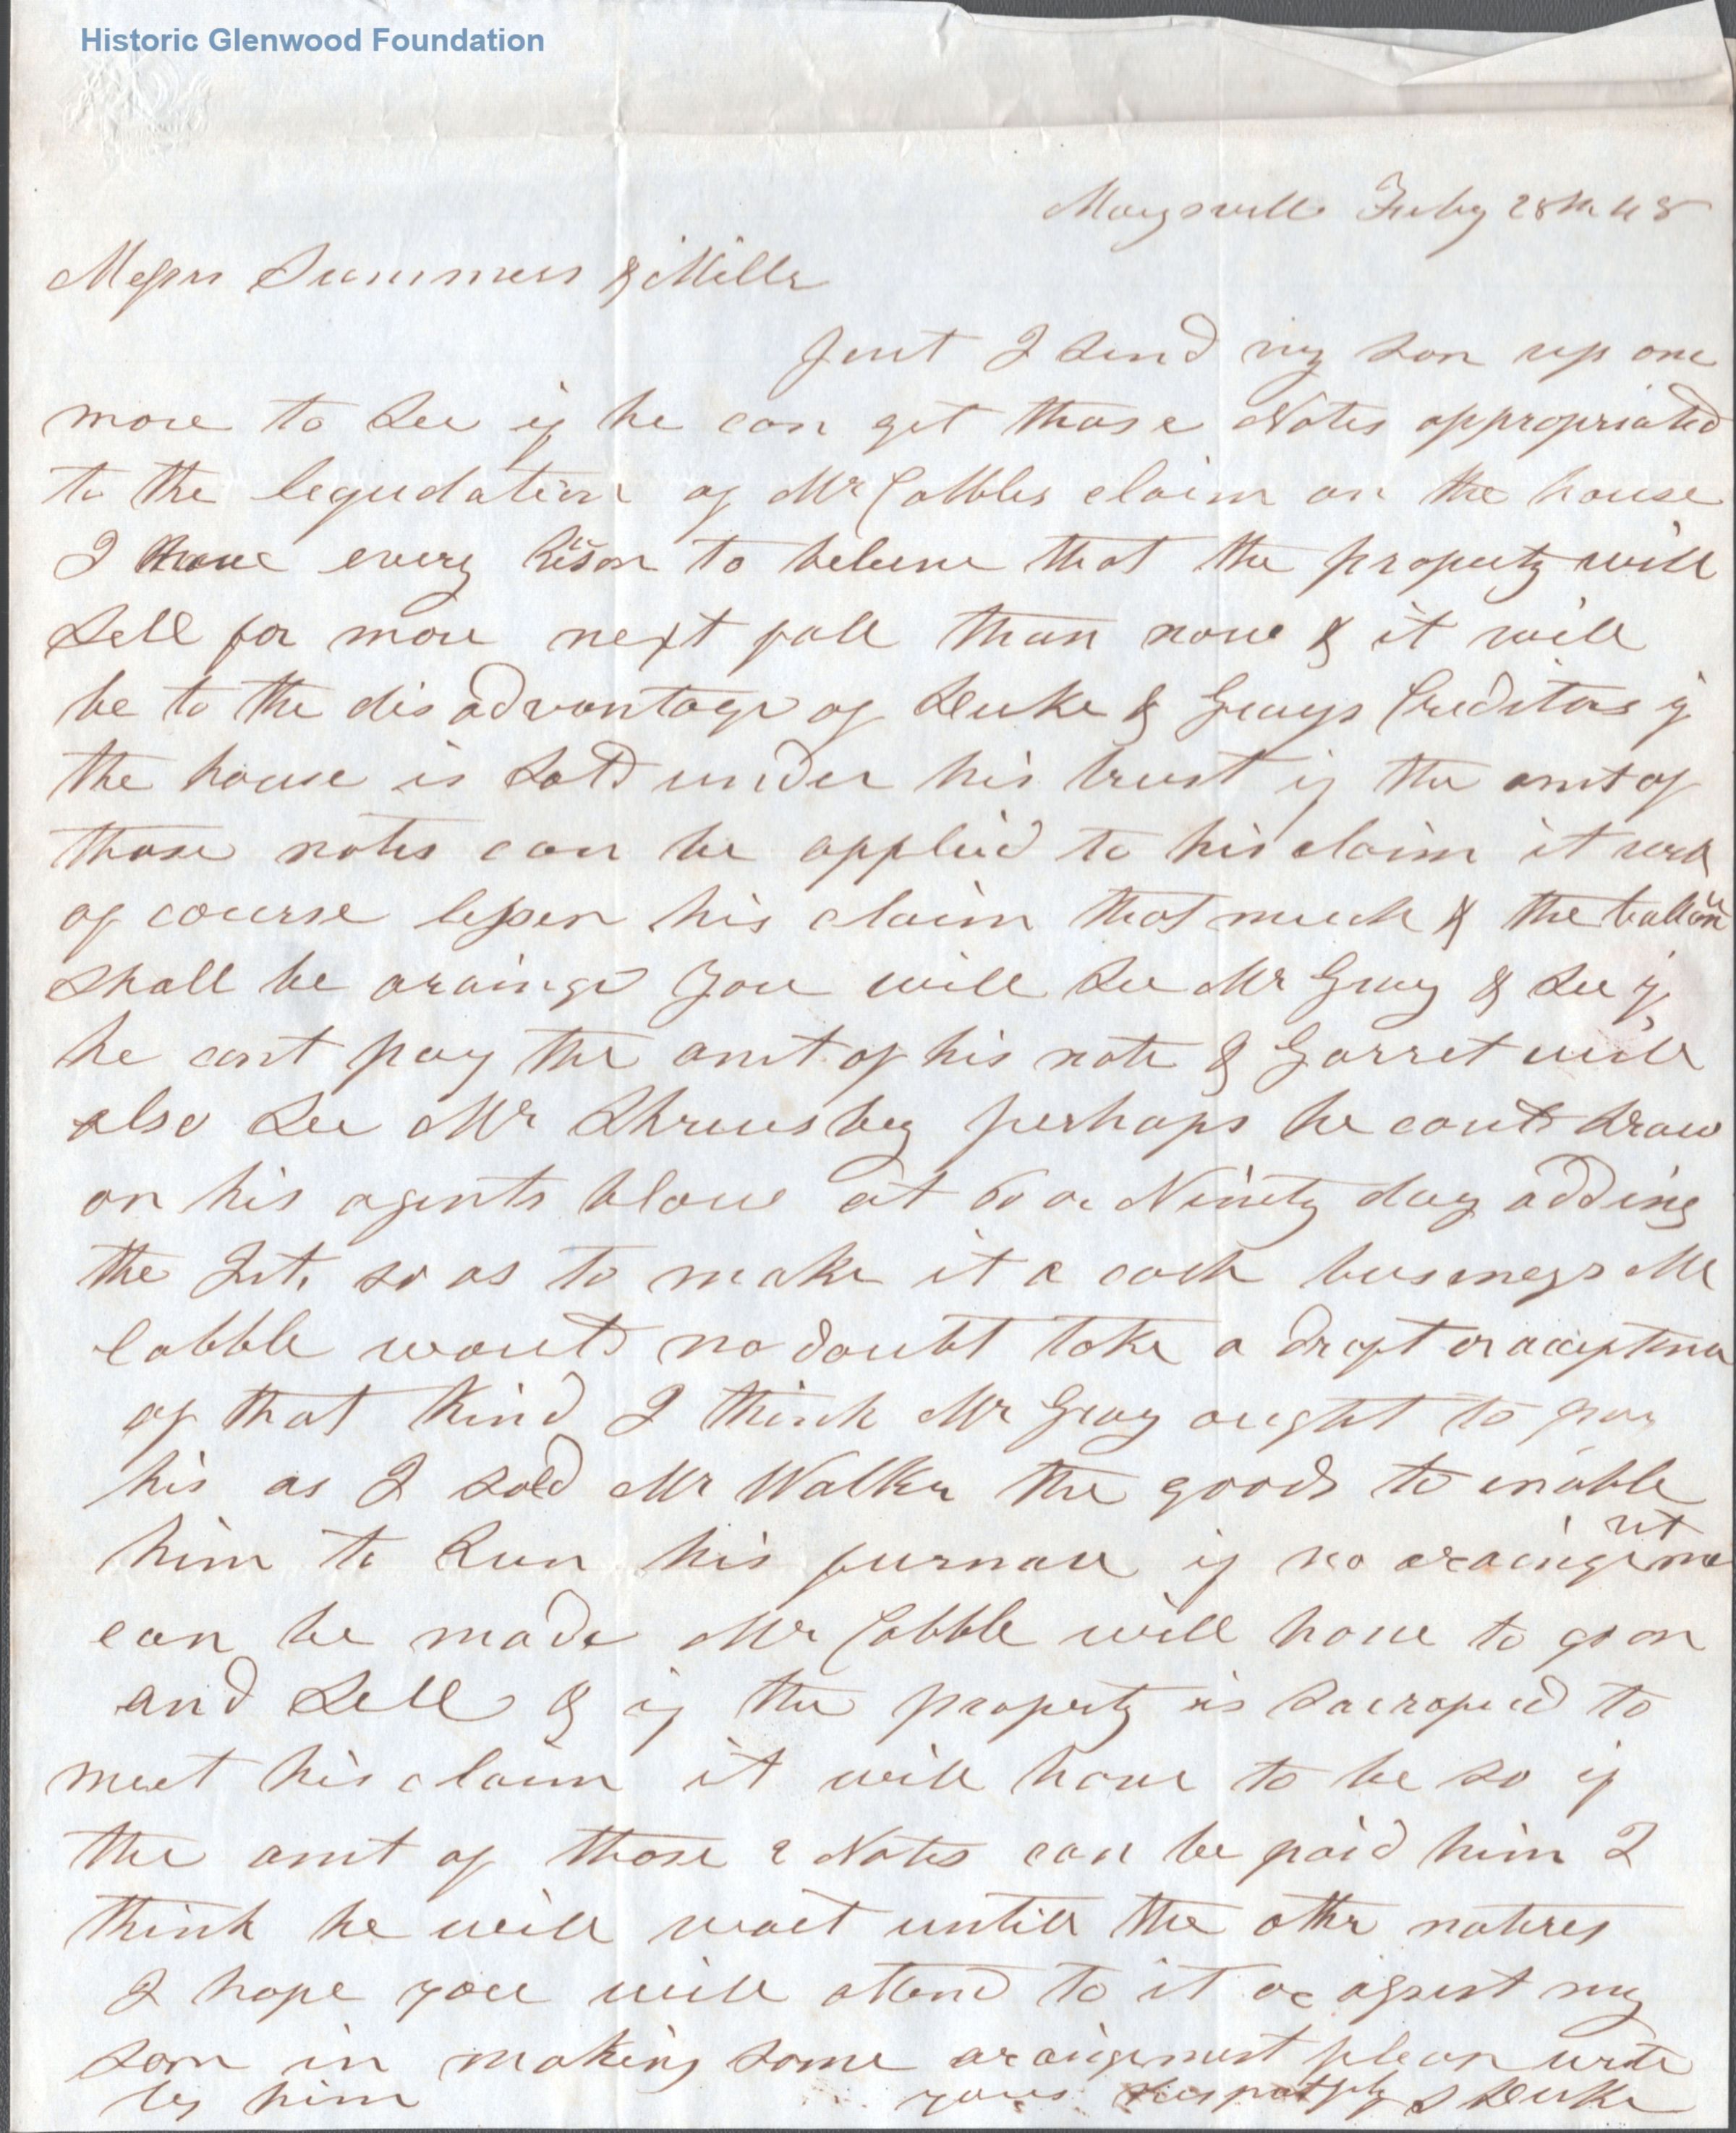 Historic Glenwood Foundation
Maysville July 28th 48
Messrs Summers & Miller
Gent I Send my Son up one
more to See if he can get those Notes appropriated
to the lequdation of Mr Cabbles claim on the house
I have every reson to beleive that the property will
Sell for more next fall than now & it will
be to the disadvantage of Duke & Grays Creditors if
the house is Sold under his trust if the amt of
those notes can be applied to his claim it will
of course lessen his claim that much & the ballance
Shall be araingd You will See Mr Gray & See if
he cant pay the amt of his note & Garret will
also See Mr Shrewsbey perhaps he could draw
on his agents below at 60 or Ninety day adding
the Int. so as to make it a cash business Mr
Cabble would no doubt take a draft or acceptence
of that Kind I think Mr Gray aught to pay
his as I sold Mr Walker the goods to inable
him to Run his furnace if no araingement
can be made Mr Cabble will have to go on
and Sell & if the property is Sacrafised to
meet his claim it will have to be so if
the amt of those 2 Notes can be paid him I
think he will wait untill the othr matures
I hope you will attend to it or assist my
Son in making Some araingement please write
by him yours Respectfly J Duke